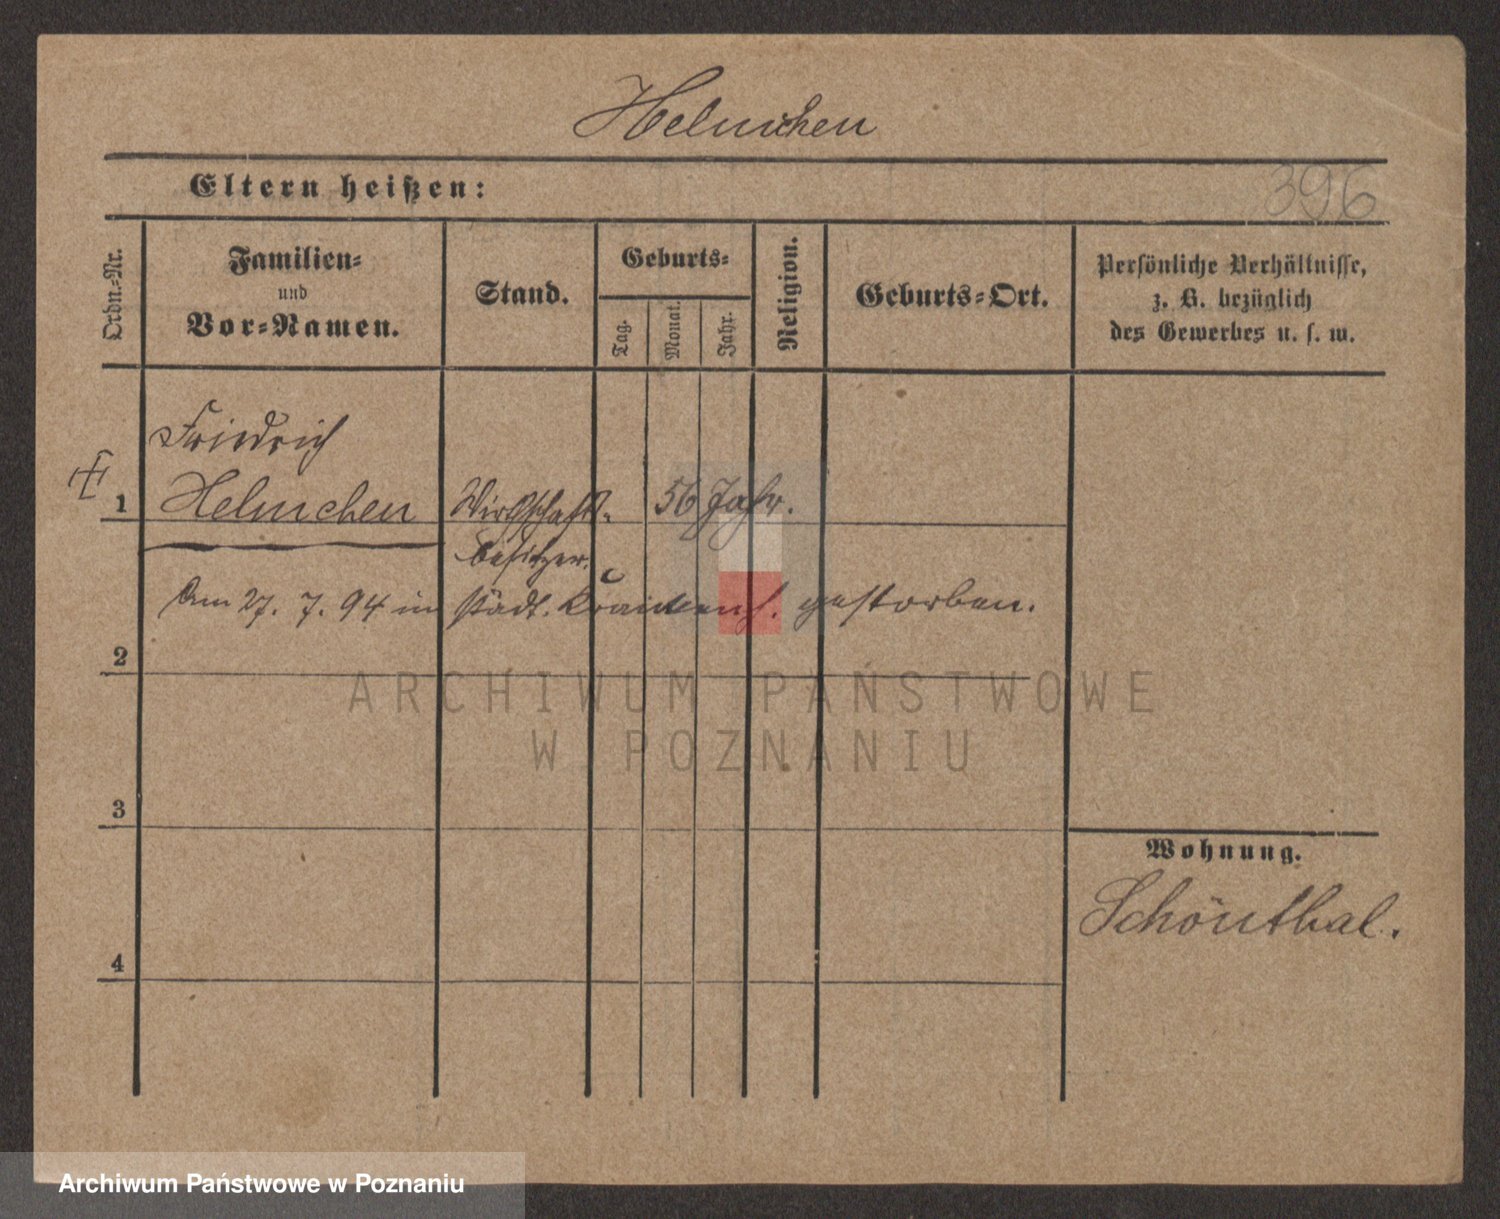 Helmchen
Eltern heißen:
396
Ordn.-Nr.
Familien-
und
Vor-Namen.
Stand.
Geburts-
Tag.
Monat.
Jahr.
Religion.
Geburts-Ort.
Persönliche Verhältnisse,
z. B. bezüglich
des Gewerbes u. s. w.
Friedrich
1 Helmchen Wirthschafts- 56 Jahr.
besitzer.
Am 27. 7. 94 im städt. Krankenh. gestorben.
2
ARCHIWUM PAŃSTWOWE
W POZNANIU
3
Wohnung.
Schönthal.
4
Archiwum Państwowe w Poznaniu